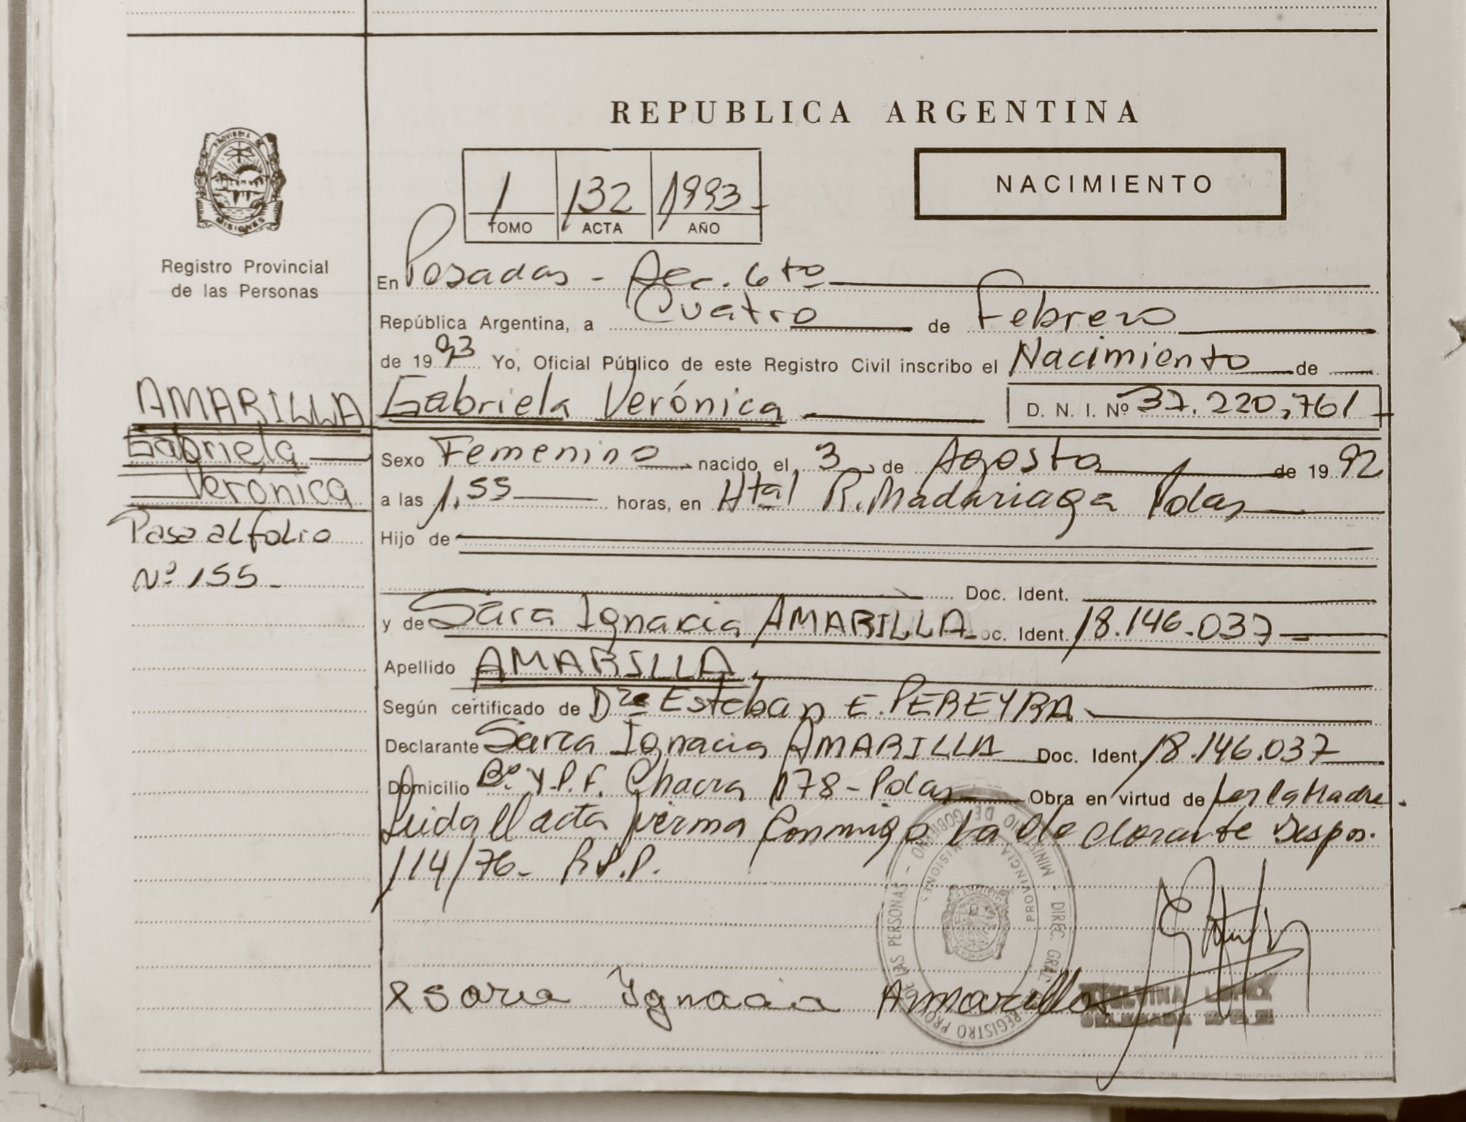 REPUBLICA ARGENTINA
NACIMIENTO
1 132 1993
TOMO ACTA AÑO
Registro Provincial
de las Personas
En Posadas - Sec. 6to
República Argentina, a Cuatro de Febrero
de 1993 Yo, Oficial Público de este Registro Civil inscribo el Nacimiento de
AMARILLA
Gabriela
Verónica
Pasa al folio
Nº 155
Gabriela Verónica D. N. I. Nº 37.220.761
Sexo Femenino nacido el 3 de Agosto de 1992
a las 1.55 horas, en Htal R. Madariaga Pdas
Hijo de
Doc. Ident.
y de Sara Ignacia AMARILLA Doc. Ident. 18.146.037
Apellido AMARILLA
Según certificado de Esteban E. PEREYRA
Declarante Sara Ignacia AMARILLA Doc. Ident. 18.146.037
Domicilio Bº Y.P.F. Chacra 178 - Pdas Obra en virtud de ser la Madre.
Leida el acta firma conmigo la declarante Dispos.
114/76 - R.P.P.
MINISTERIO DE GOBIERNO - DIREC. GRAL. REGISTRO PROV. DE LAS PERSONAS
PROVINCIA MISIONES
Sara Ignacia Amarilla
LOPEZ
DELEGADA